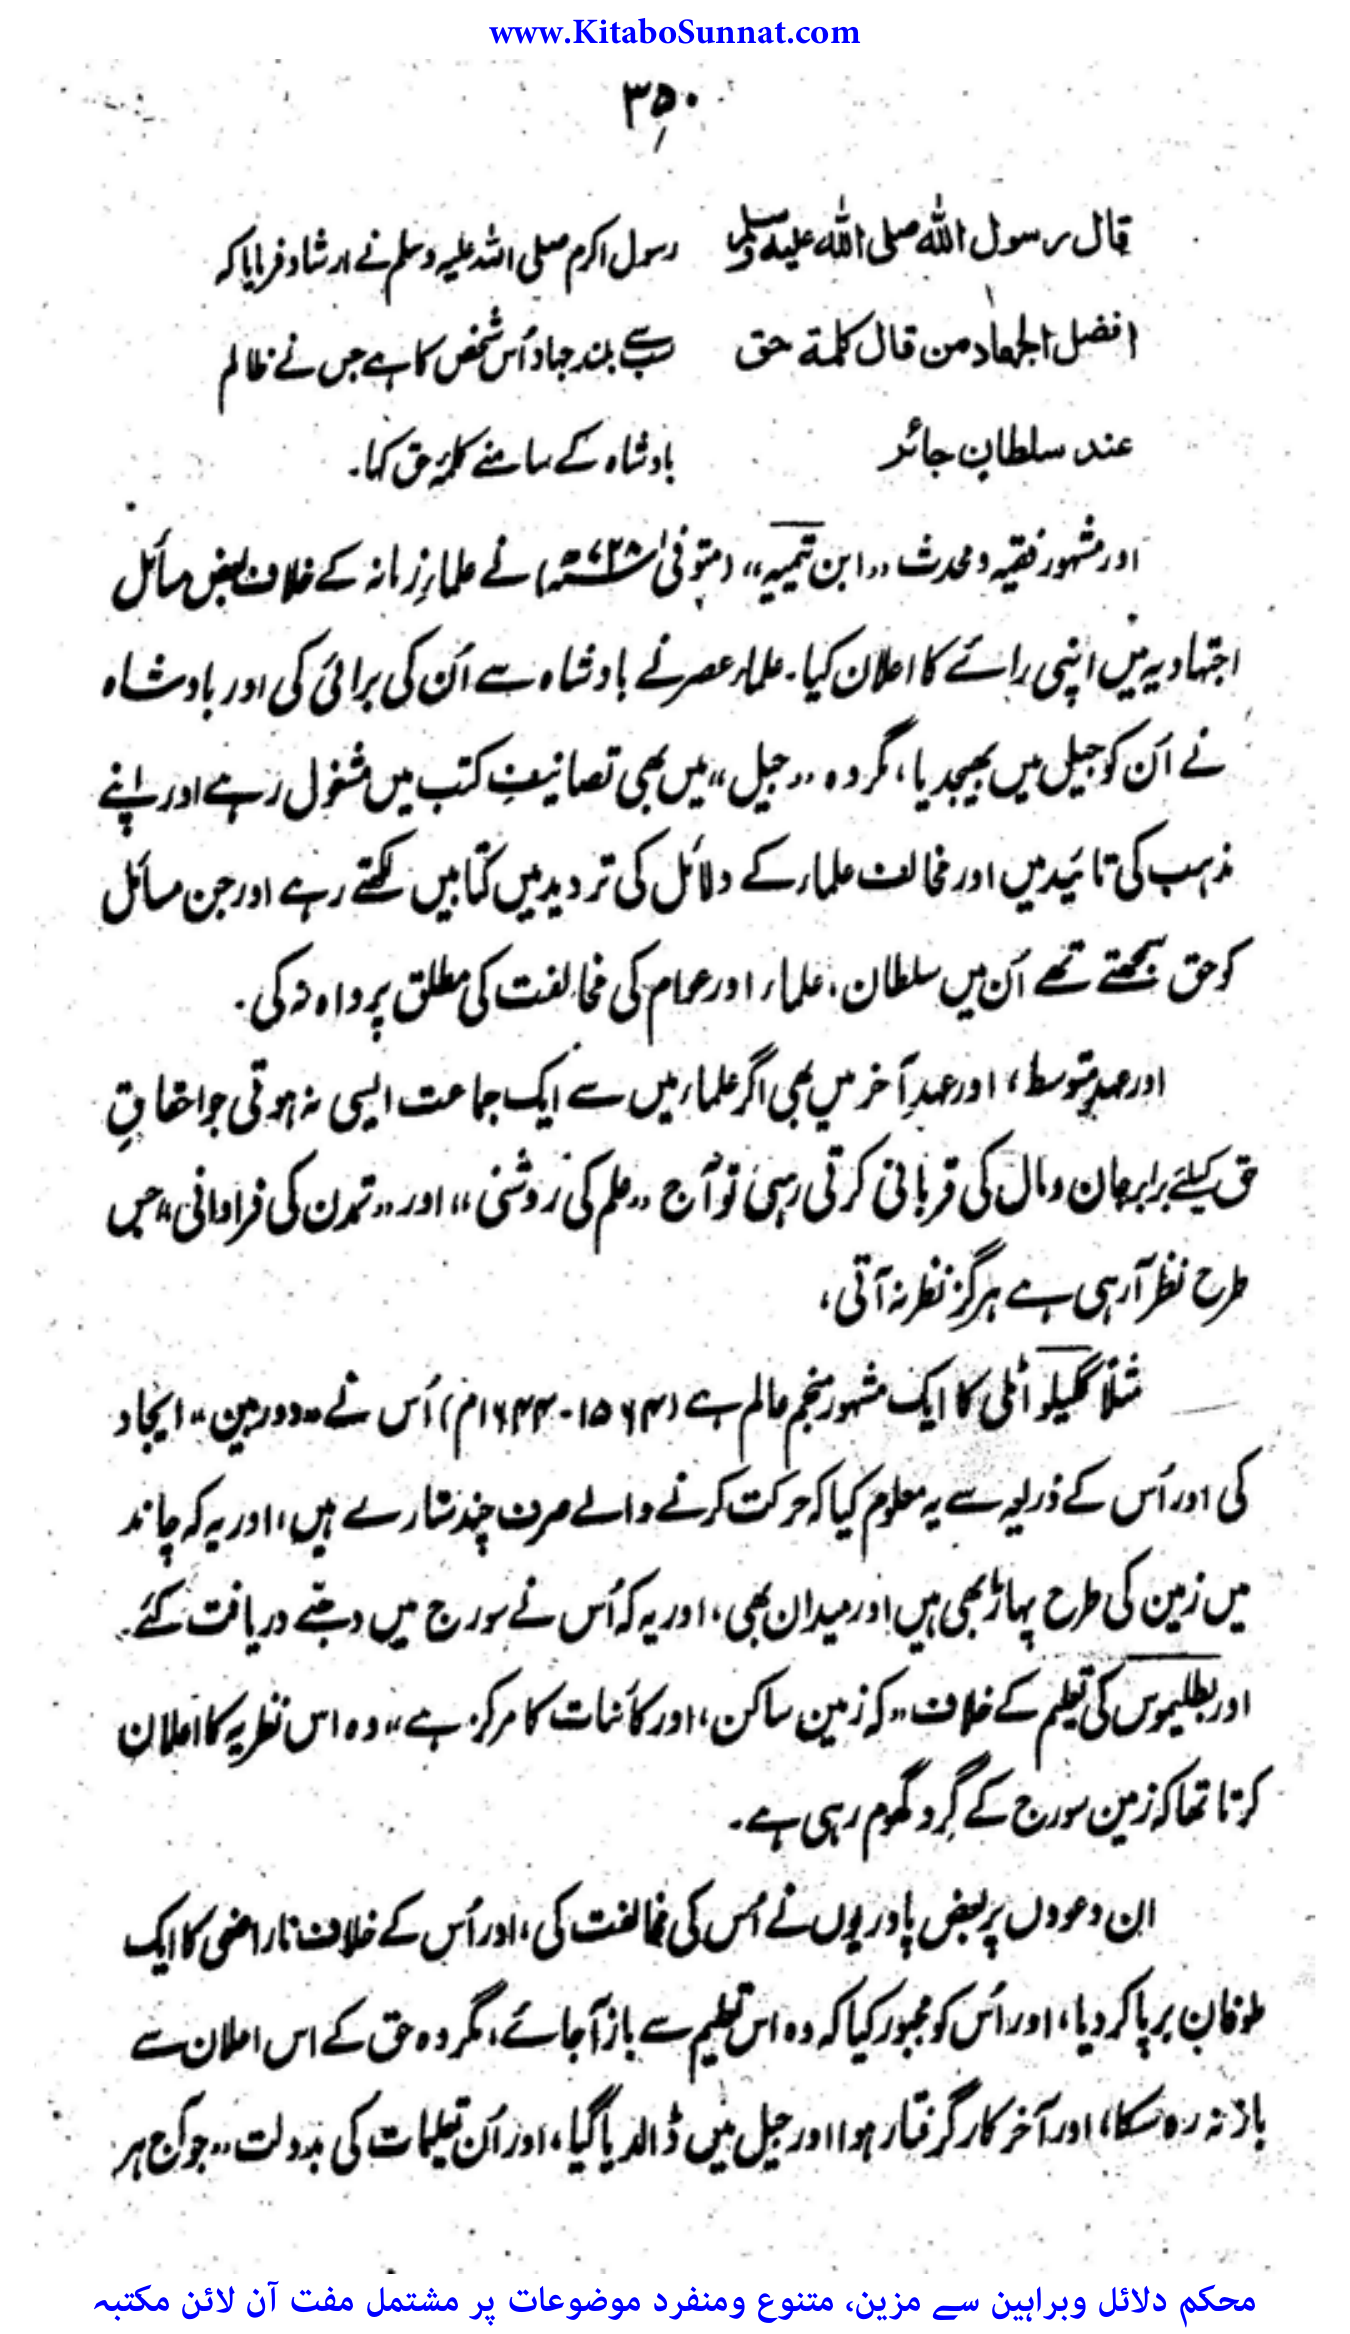 www.KitaboSunnat.com
۳۵۰
قال رسول الله صلی الله علیه وسلم رسول اکرم صلی اللہ علیہ وسلم نے ارشاد فرمایا کہ
افضل الجهاد من قال کلمة حق سب سے بلند جہاد اُس شخص کا ہے جس نے ظالم
عند سلطان جائر بادشاہ کے سامنے کلمۂ حق کہا۔
اور مشہور فقیہ و محدث ”ابن تیمیہ“ (متوفی ۷۲۸ھ) نے علماءِ زمانہ کے خلاف بعض مسائل
اجتہادیہ میں اپنی رائے کا اعلان کیا۔ علماءِ عصر نے بادشاہ سے اُن کی برائی کی اور بادشاہ
نے اُن کو جیل میں بھیجدیا، مگر وہ ”جیل“ میں بھی تصانیفِ کتب میں مشغول رہے اور اپنے
مذہب کی تائید میں اور مخالف علماء کے دلائل کی تردید میں کتابیں لکھتے رہے اور جن مسائل
کو حق سمجھتے تھے اُن میں سلطان، علماء اور عوام کی مخالفت کی مطلق پرواہ نہ کی۔
اور عہدِ متوسط، اور عہدِ آخر میں بھی اگر علماء میں سے ایک جماعت ایسی نہ ہوتی جو احقاقِ
حق کیلئے برابر جان و مال کی قربانی کرتی رہی تو آج ”علم کی روشنی“ اور ”تمدن کی فراوانی“ جس
طرح نظر آرہی ہے ہرگز نظر نہ آتی،
مثلاً گلیلو اٹلی کا ایک مشہور منجم عالم ہے (۱۵۶۴-۱۶۴۴م) اُس نے ”دوربین“ ایجاد
کی اور اُس کے ذریعہ سے یہ معلوم کیا کہ حرکت کرنے والے صرف چند ستارے ہیں، اور یہ کہ چاند
میں زمین کی طرح پہاڑ بھی ہیں اور میدان بھی، اور یہ کہ اُس نے سورج میں دھبے دریافت کئے۔
اور بطلیموس کی تعلیم کے خلاف ”کہ زمین ساکن، اور کائنات کا مرکز ہے“ وہ اس نظریہ کا اعلان
کرتا تھا کہ زمین سورج کے گرد گھوم رہی ہے۔
ان دعووں پر بعض پادریوں نے اُس کی مخالفت کی، اور اُس کے خلاف ناراضی کا ایک
طوفان برپا کردیا، اور اُس کو مجبور کیا کہ وہ اس تعلیم سے باز آجائے، مگر وہ حق کے اس اعلان سے
باز نہ رہ سکا، اور آخر کار گرفتار ہوا اور جیل میں ڈالدیا گیا، اور اُن تعلیمات کی بدولت ”جو آج ہر
محکم دلائل وبراہین سے مزین، متنوع ومنفرد موضوعات پر مشتمل مفت آن لائن مکتبہ